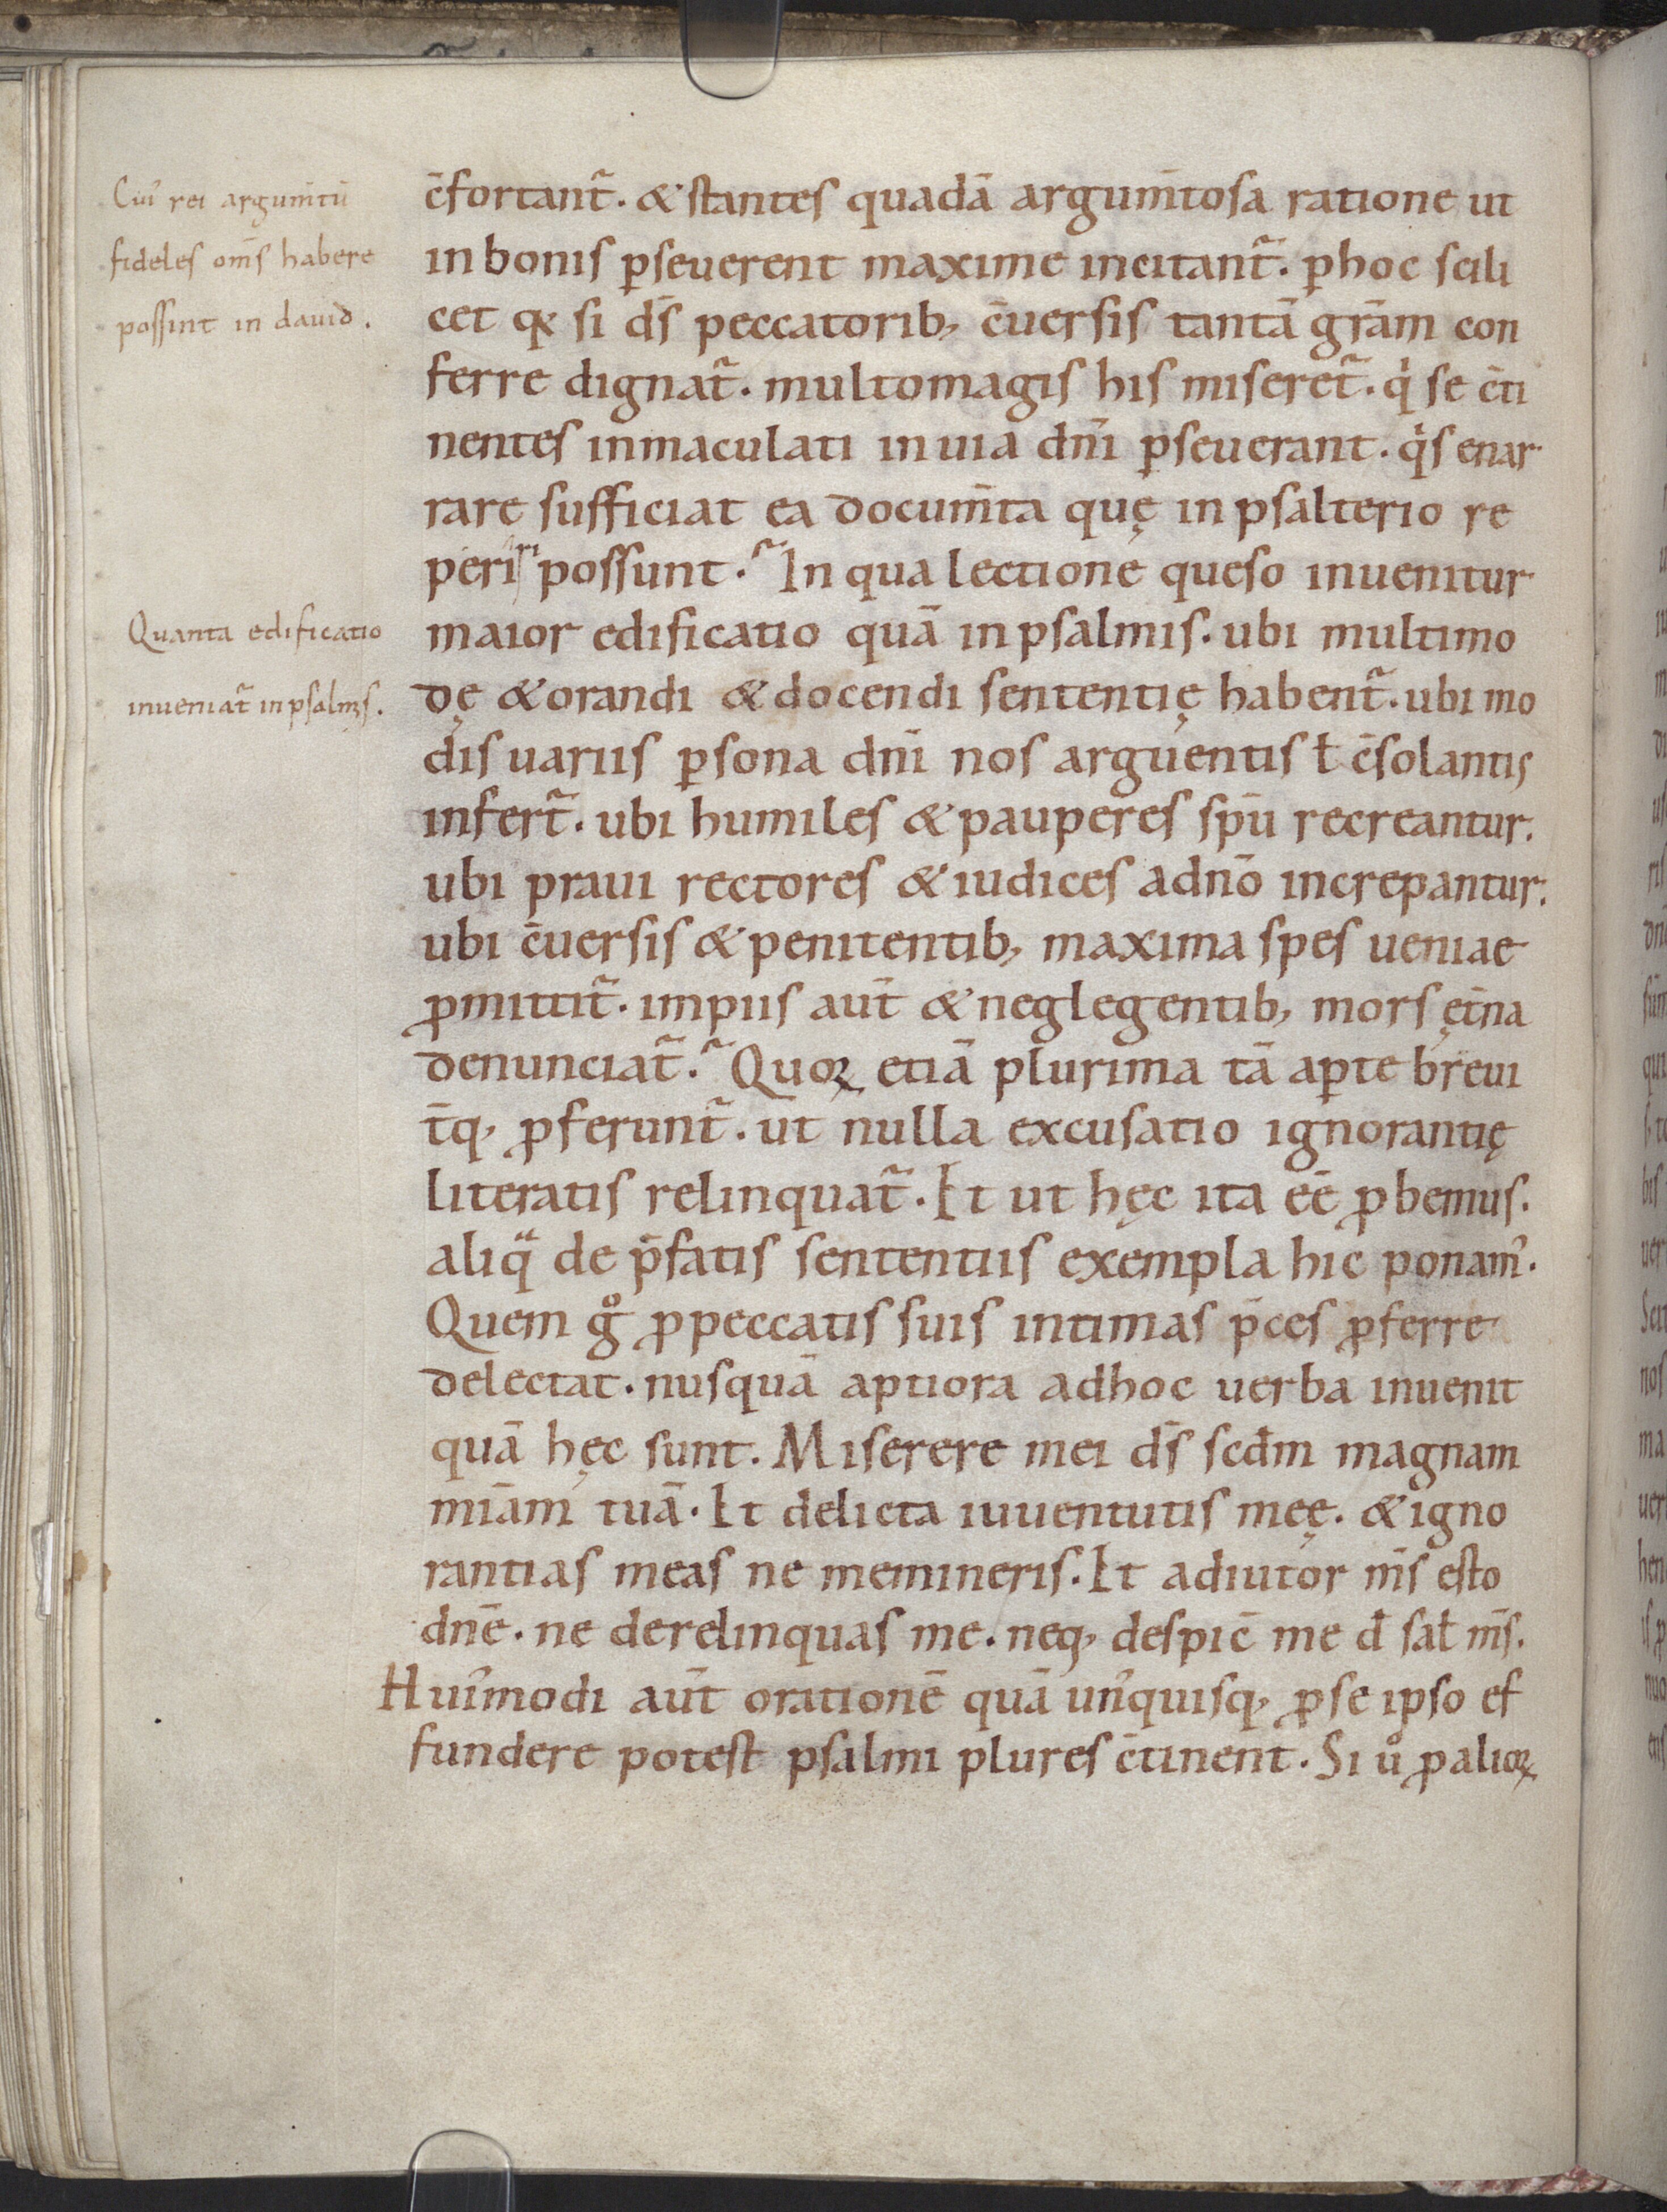 Cui᷒ rei argum̄tū
fideles om̄s habere
possint in dauid.
c̄fortant̃. & stantes quadā argum̄tosa ratione ut
in bonis ꝑseuerent maxime incitant̃. ꝑ hoc scili
cet qꝫ si d̄s peccatorib; c̄uersis tantā grām con
ferre dignat̃. multomagis his miseret̃. qͥ se c̄ti
nentes inmaculati in uia dn̄i ꝑseuerant. qͥs enar
rare sufficiat ea docum̄ta quę in psalterio re
periri possunt.̃ In qua lectione queso inuenitur
Quanta edificatio
inueniat̃ in psalmis.
maior edificatio quā in psalmis. ubi multimo
dę & orandi & docendi sententię habent̃. ubi mo
dis uariis ꝑsona dn̄i nos arguentis ł c̄solantis
infert̃. ubi humiles & pauperes sp̄u recreantur.
ubi praui rectores & iudices a dn̄o increpantur.
ubi c̄uersis & penitentib; maxima spes ueniae
ꝓmittit̃. impiis aut̄ & neglegentib; mors ęt̄na
denunciat̃.̃ Quoꝝ etiā plurima tā aꝑte breui
t̄q; ꝓferunt̃. ut nulla excusatio ignorantię
literatis relinquat̃. Et ut hęc ita eē ꝓbemus.
aliqͣ de p̄fatis sententiis exempla hic ponam᷒.
Quem gͦ ꝓ peccatis suis intimas p̄ces ꝓferre
delectat. nusquā aptiora ad hoc uerba inuenit
quā hęc sunt. Miserere mei d̄s scd̄m magnam
miām tuā. Et delicta iuuentutis meę. & igno
rantias meas ne memineris. Et adiutor m̄s esto
dn̄e. ne derelinquas me. neq; despic̄ me d̄ sał m̄s.
Hui᷒modi aut̄ orationē quā un᷒quisq; ꝓ se ipso ef
fundere potest psalmi plures c̄tinent. Si uͦ ꝓ alioꝝ